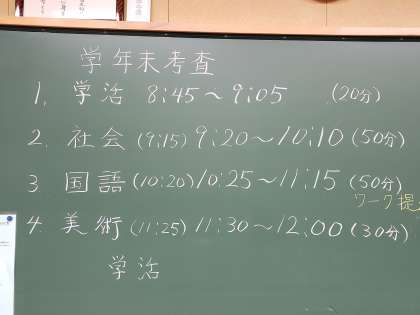 学年末考査
1. 学活 8:45〜9:05 (20分)
2. 社会 (9:15) 9:20〜10:10 (50分)
3 国語 (10:20) 10:25〜11:15 (50分)
ワーク提
4. 美術 (11:25) 11:30〜12:00 (30分)
学活